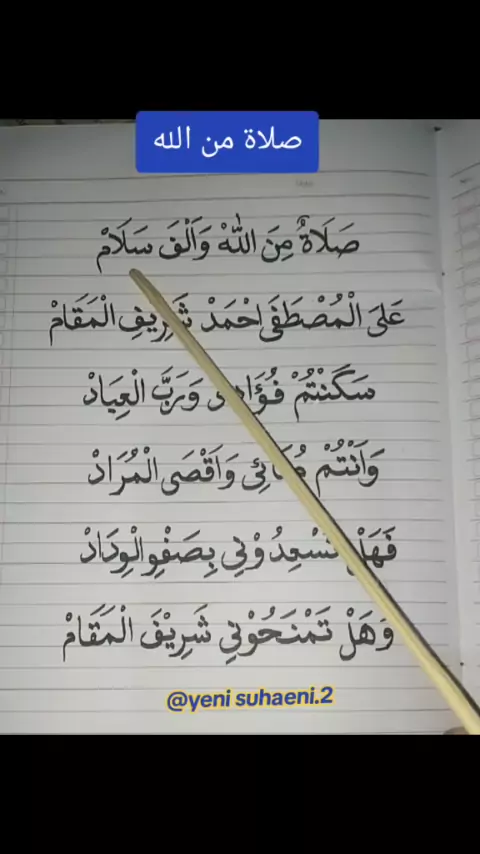 صلاة من الله
صَلَاةٌ مِنَ اللّٰهْ وَاَلْفَ سَلَامْ
عَلَى الْمُصْطَفَى احْمَدْ شَرِيفِ الْمَقَامْ
سَكَنْتُمْ وَرَبَّ الْعِبَادْ
وَاَنْتُمْ وَاَقْصَى الْمُرَادْ
فَهَلْ تُسْعِدُوْنِي بِصَفْوِ الْوِدَادْ
وَهَلْ تَمْنَحُوْنِي شَرِيْفَ الْمَقَامْ
@yeni suhaeni.2